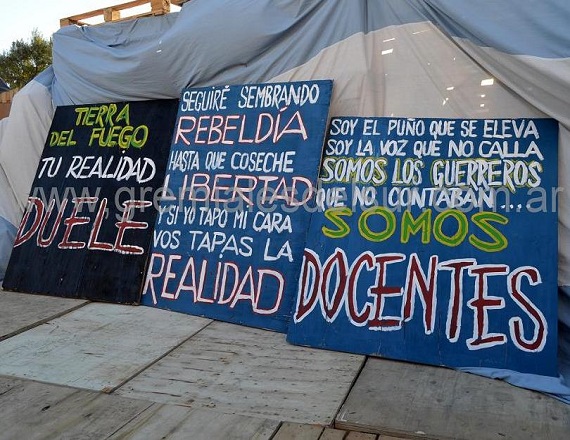 TIERRA
DEL FUEGO
TU REALIDAD
DUELE
SEGUIRÉ SEMBRANDO
REBELDÍA
HASTA QUE COSECHE
LIBERTAD
Y SI YO TAPO MI CARA
VOS TAPAS LA
REALIDAD
SOY EL PUÑO QUE SE ELEVA
SOY LA VOZ QUE NO CALLA
SOMOS LOS GUERREROS
QUE NO CONTABAN...
SOMOS
DOCENTES
www.gremialesdelsur.com.ar